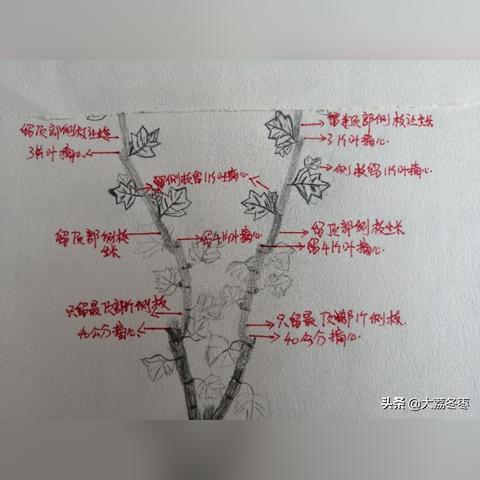 留顶部侧枝让生长
留顶部侧枝让生长
3片叶摘心
3片叶摘心
侧枝留1片叶摘心
留侧枝留1片叶摘心
留顶部侧枝
生长
留4片叶摘心
留顶部侧枝生长
留4片叶摘心
只留最顶部1个侧枝
40公分摘心
只留最顶部1个侧枝
40公分摘心
头条 @大荔冬枣